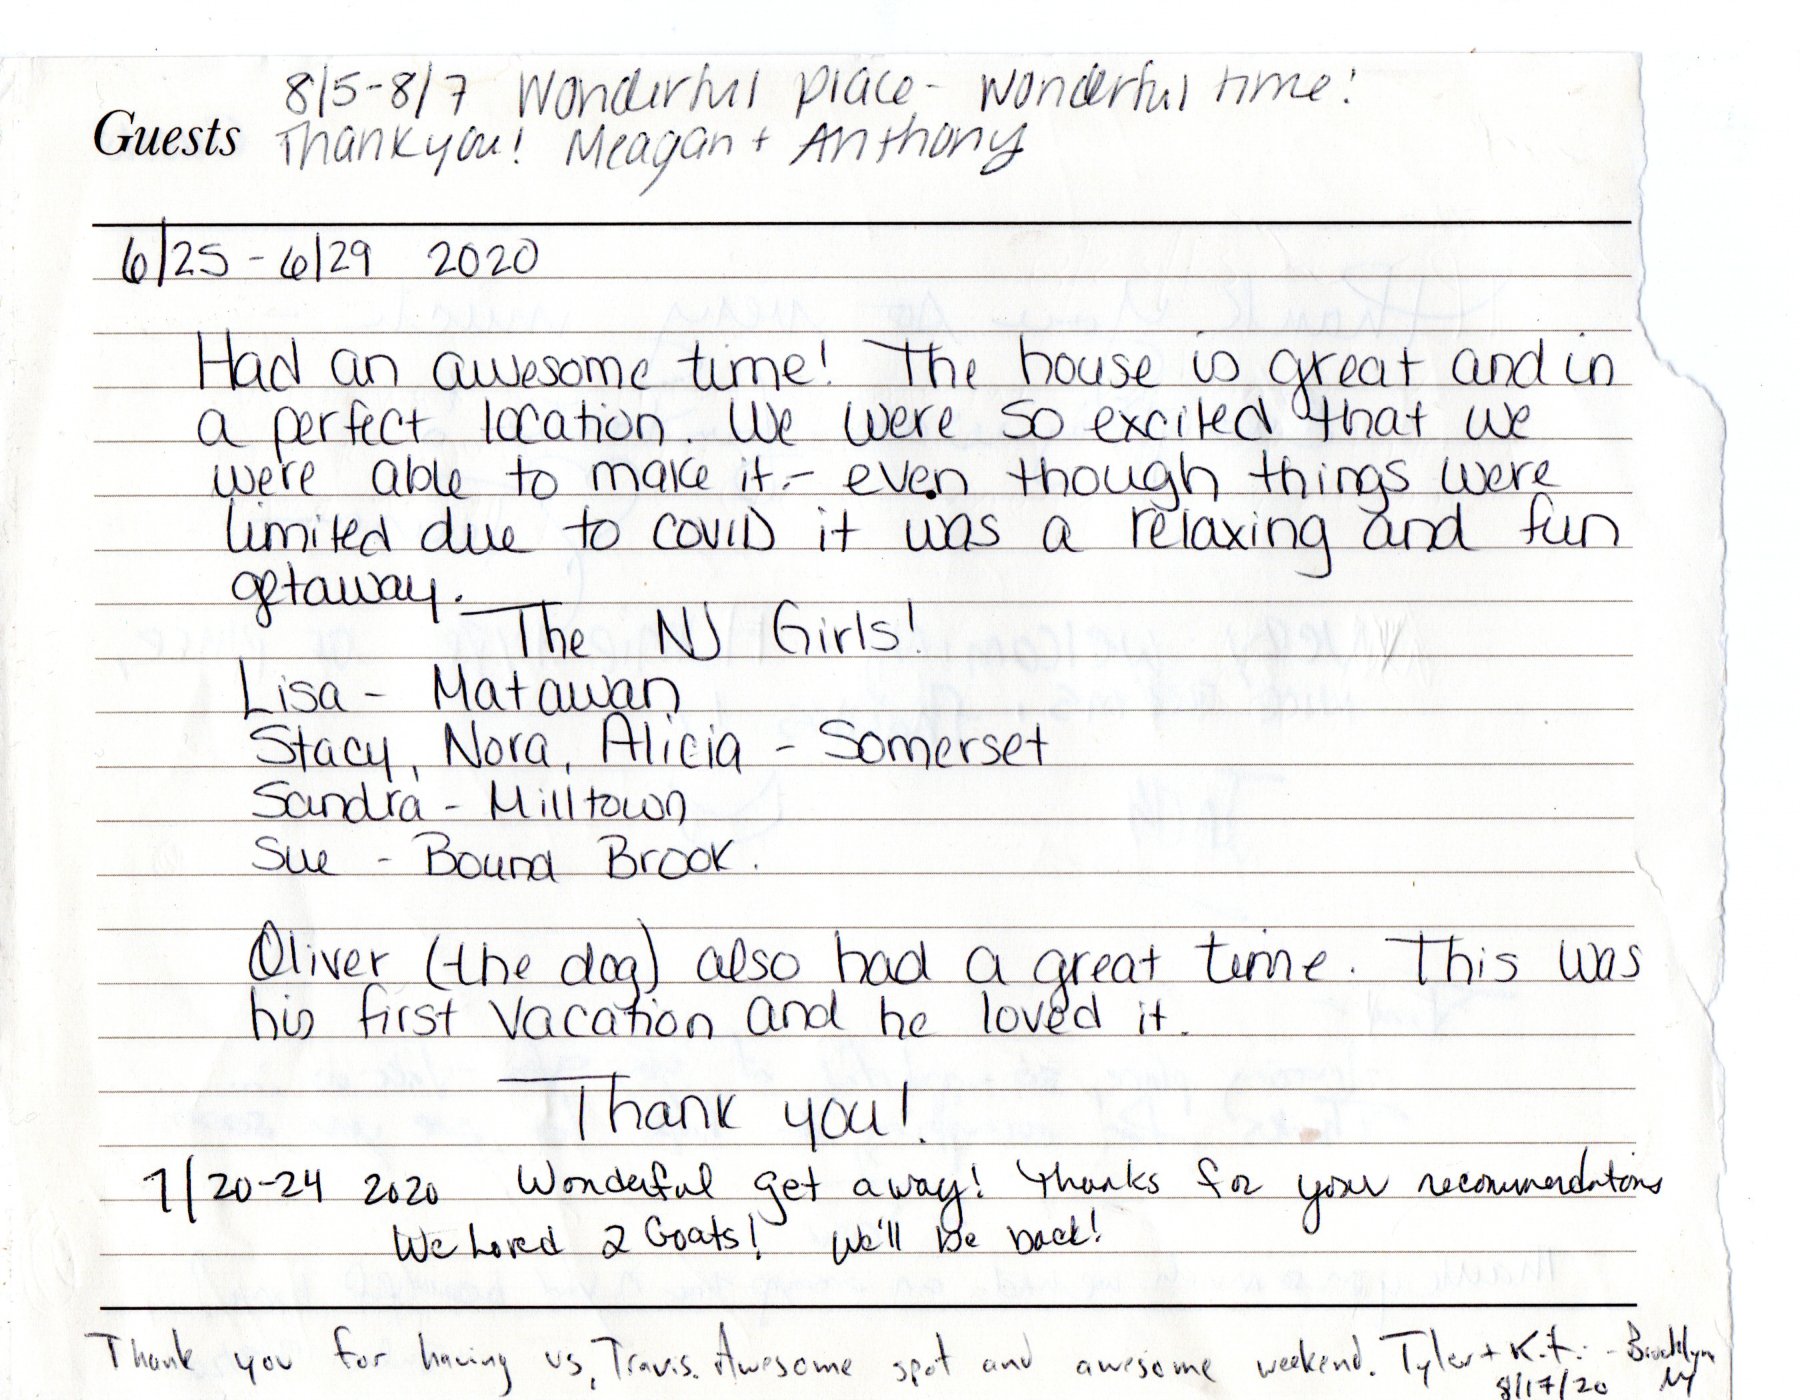 8/5-8/7 Wonderful place- Wonderful time!
Guests Thank you! Meagan + Anthony
6/25 - 6/29 2020
Had an awesome time! The house is great and in
a perfect location. We were so excited that we
were able to make it - even though things were
limited due to COVID it was a relaxing and fun
getaway.
The NJ Girls!
Lisa - Matawan
Stacy, Nora, Alicia - Somerset
Sandra - Milltown
Sue - Bound Brook.
Oliver (the dog) also had a great time. This was
his first vacation and he loved it.
Thank you!
7/20-24 2020 Wonderful get away! Thanks for your recommendations
We Loved 2 Goats! We'll be back!
Thank you for having us, Travis. Awesome spot and awesome weekend. Tyler + - Brooklyn
8/17/20 NY